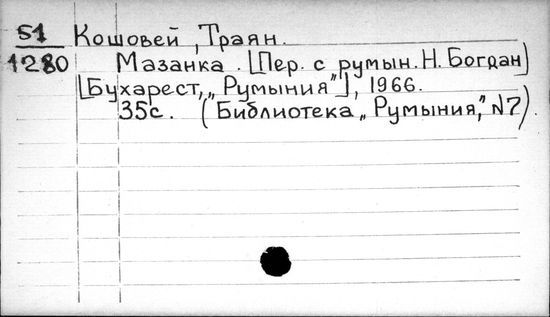 51 Кошовей, Траян.
1280 Мазанка. [Пер. с румын. Н. Богдан]
[Бухарест, „Румыния"], 1966.
35с. (Библиотека „Румыния", №7).